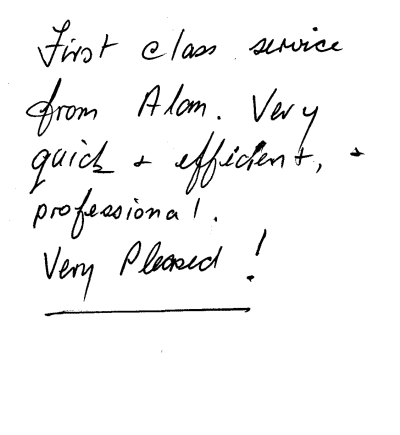 First class service
from Alan. Very
quick + efficient, +
professional.
Very Pleased !